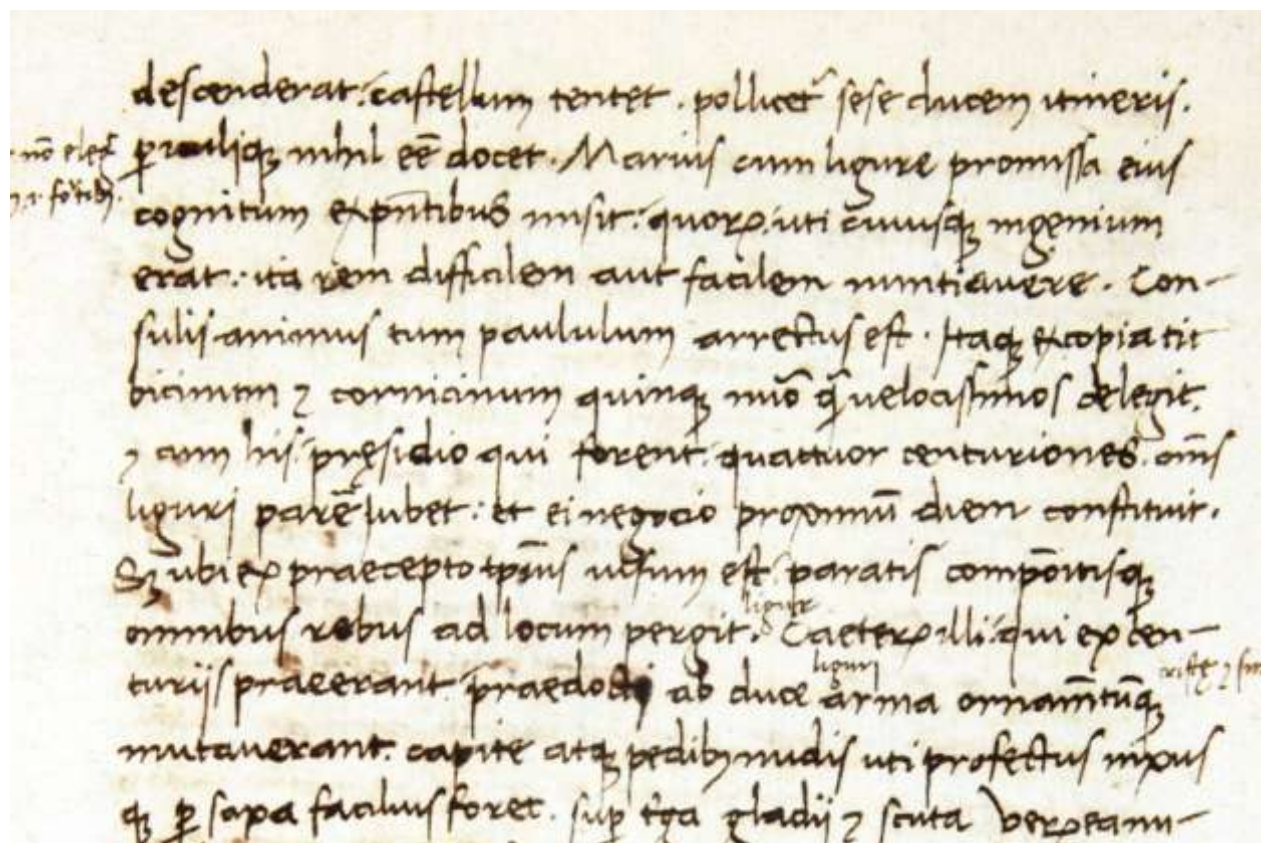 descenderat: castellum tentet. pollicet̃ sese ducem itineris.
nõ eleg̃
ꝑiculiqꝫ nihil eẽ docet. Marius cum ligure promissa eius
cognitum ex pñtibus misit: quorꝝ. uti cuiusqꝫ ingenium
erat: ita rem difficilem aut facilem nuntiavere. Con-
sulis animus tum paululum arrectus est. Itaqꝫ ex copia tit
bicinum ⁊ cornicinum quinqꝫ nũo q̃ velocissimos delegit.
⁊ cum his: pręsidio qui forent: quattuor centuriones. oms̃
liguri parẽ lubet: et ei negocio proximũ diem constituit.
Sꝫ ubi ex praecepto tpm̃s visum est: paratis compõitisqꝫ
omnibus rebus ad locum pergit.
ligur
Caeterꝝ illi: qui ex cen-
turiis praeerant: praedocti ab duce
liguri
arma ornam̃tũqꝫ
mutaverant: capite atqꝫ pedibꝫ nudis uti profectus nixus
qꝫ ꝑ saxa facilius foret. suꝑ t̃ga gladii ⁊ scuta verꝝ eanu-